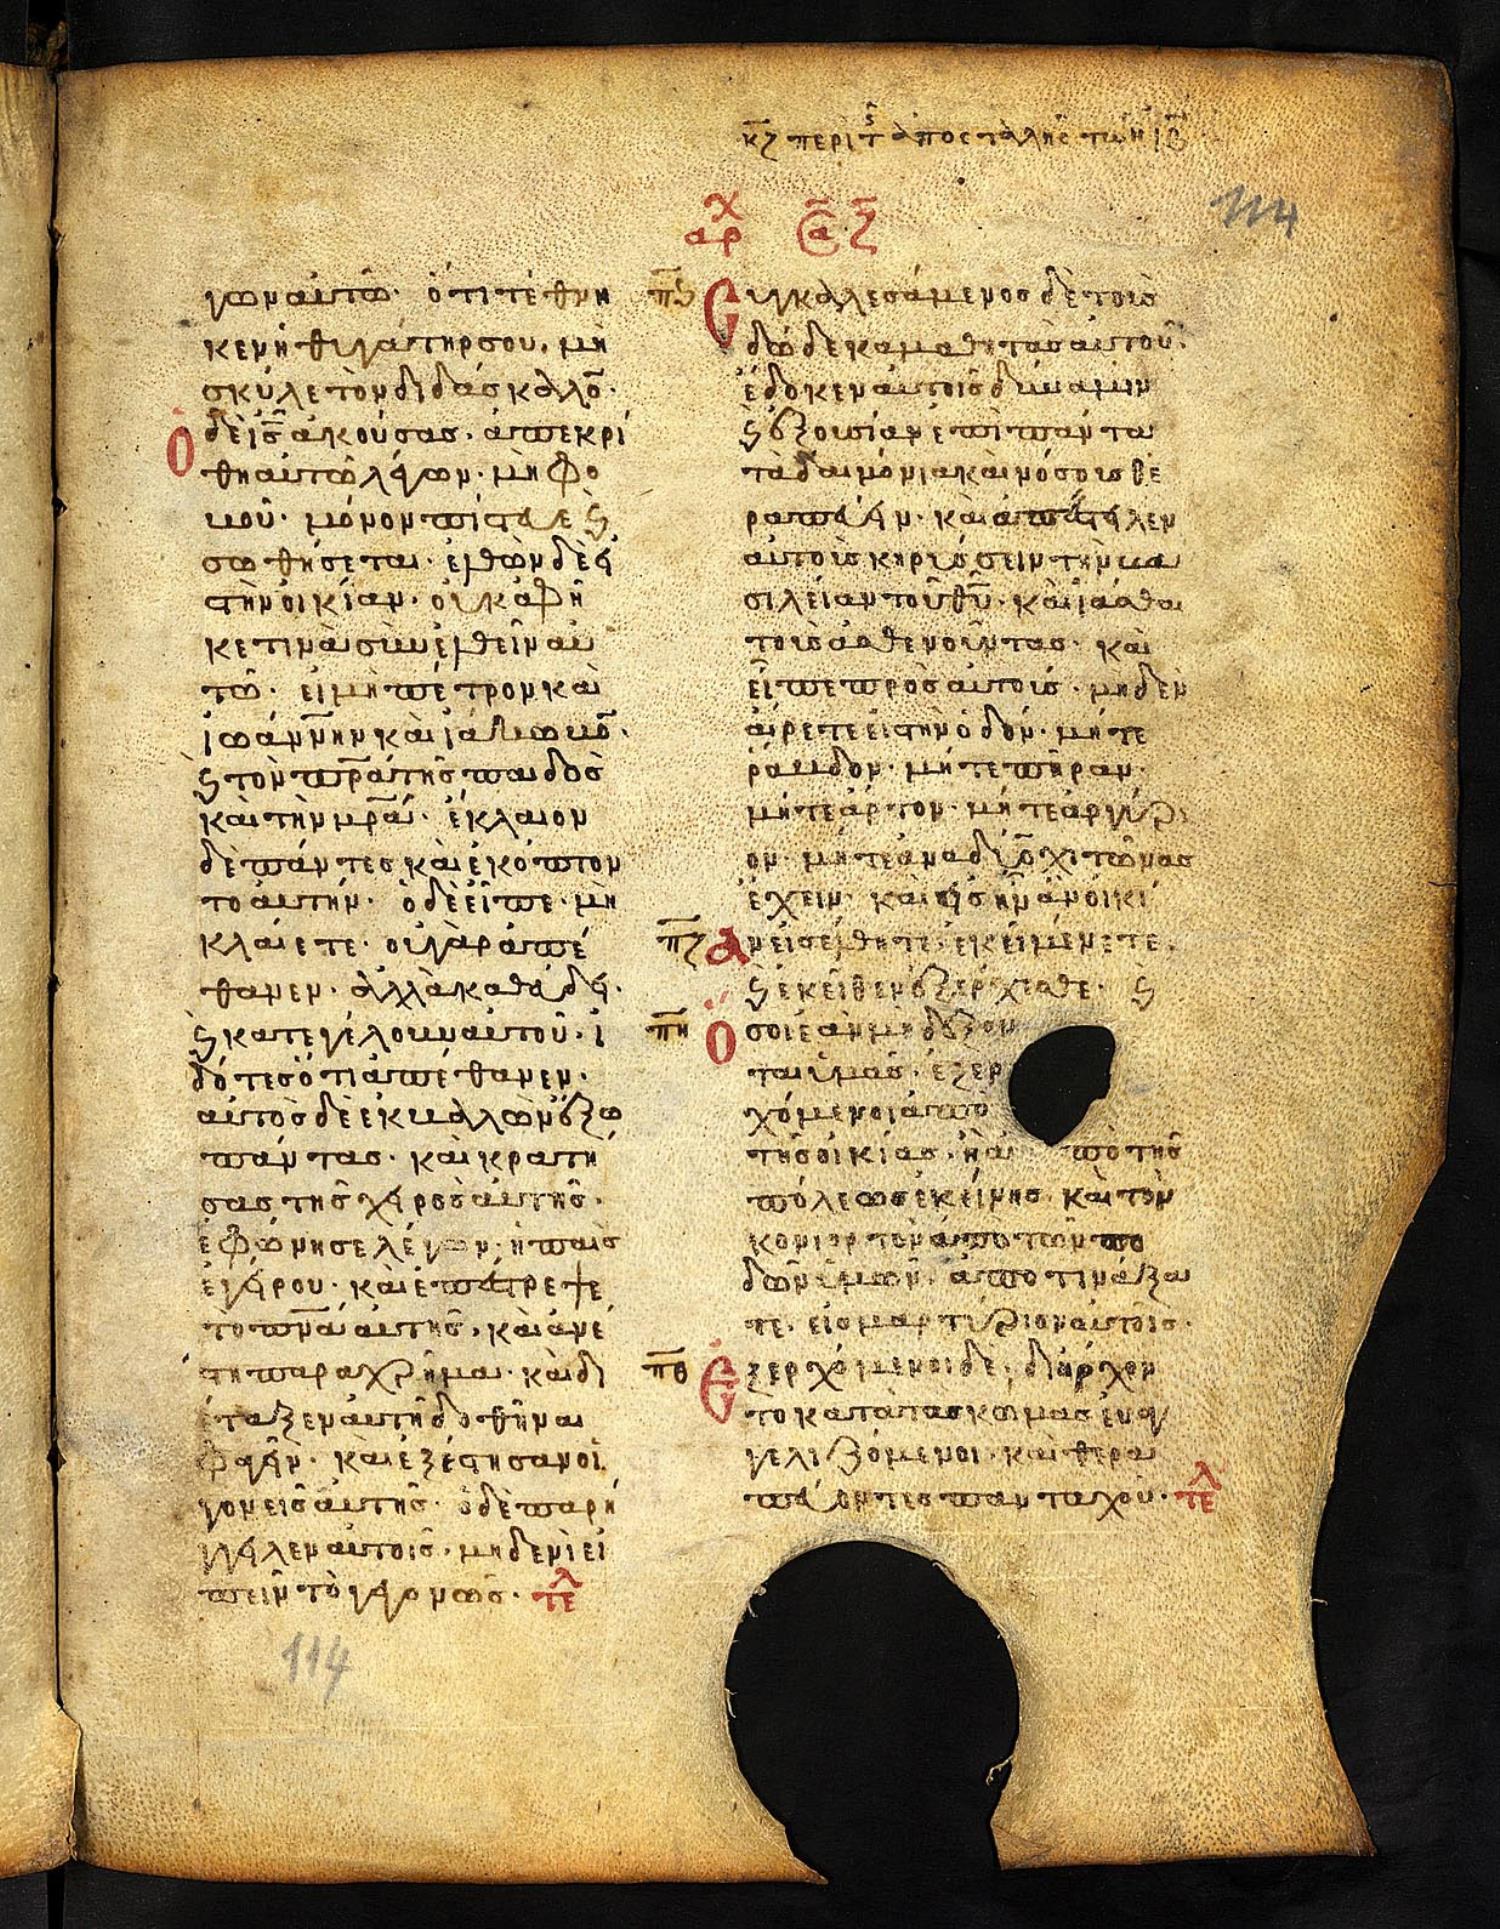 κζ περὶ τῆς ἀποστολῆς τῶν ιβ
114
αρχ ζ
γων αυτῶ· ὅτι τέθνη
κεν ἡ θυγάτηρ σου, μὴ
σκύλε τὸν διδάσκαλō·
Ὁ δὲ ις̄ ἀκούσας· ἀπεκρί
θη αυτῶ λέγων· μὴ φο
βοῦ· μόνον πίστευε ϗ
σωθήσεται· ἐλθὼν δὲ εἰ
ς τὴν οἰκίαν· οὐκ ἀφῆ
κε τινὰ συνελθεῖν αυ
τῶ· εἰ μὴ πέτρον καὶ
ἰωάννην καὶ ϊάκωβō·
ϗ τὸν πρ̄α τῆς παιδὸς
καὶ τὴν μρ̄α· ἔκλαιον
δὲ πάντες καὶ ἐκόπτον
το αυτήν· ὁ δὲ εἶπε· μὴ
κλαίετε· οὐ γὰρ ἀπέ
θανεν· ἀλλὰ καθεύδει·
ϗ κατεγέλουν αυτοῦ· εἰ
δότες ὅτι ἀπέθανεν·
αυτὸς δὲ ἐκβαλὼν ἔξω
πάντας· καὶ κρατή
σας τῆς χειρὸς αυτῆς·
ἐφώνησε λέγων· ἡ παῖς
ἐγείρου· καὶ ἐπέστρεψε
τὸ πν̄α αυτῆς, καὶ ἀνέ
στη παραχρῆμα· καὶ δι
έταξεν αυτῆ δοθῆναι
φαγεῖν· καὶ ἐξέστησαν οἱ
γονεῖς αυτῆς· ὁ δὲ παρή
γγειλεν αυτοῖς· μηδενὶ εἰ
πεῖν τὸ γεγονώς· τελ
114
πς Συγκαλεσάμενος δὲ τοὺς
δώδεκα μαθητὰς αυτοῦ·
ἔδοκεν αυτοῖς δύναμιν
ϗ ἐξουσίαν ἐπὶ πάντα
τὰ δαιμόνια καὶ νόσους θε
ραπεύειν· καὶ ἀπέστειλεν
αυτοὺς κηρύσσειν τὴν βα
σιλείαν τοῦ θῡ· καὶ ἰᾶσθαι
τοὺς ἀσθενοῦντας· καὶ
εἶπε πρὸς αυτούς· μηδὲν
αἴρετε εἰς τὴν ὁδόν· μήτε
ράβδον· μήτε πήραν·
μήτε ἄρτον· μήτε ἀργύρι
ον· μήτε ἀνὰ δύο χιτῶνας
ἔχειν· καὶ εἰς ἣν ἂν οἰκί
πζ αν εἰσέλθητε· ἐκεῖ μένετε·
ϗ ἐκεῖθεν ἐξέρχεσθε· ϗ
πη Ὅσοι ἐὰν μὴ δέξων
ται ὑμᾶς· ἐξερ
χόμενοι ἀπὸ
τῆς οἰκίας· ἢ ἀ πὸ τῆς
πόλεως ἐκείνης· καὶ τὸν
κονιορτὸν ἀπὸ τῶν πο
δῶν ὑμῶν· ἀποτινάξα
τε· εἰς μαρτύριον αυτοῖς·
πθ Ἐξερχόμενοι δὲ, διήρχον
το κατὰ τὰς κώμας ευαγ
γελιζόμενοι· καὶ θερα
πεύοντες πανταχοῦ· τελ